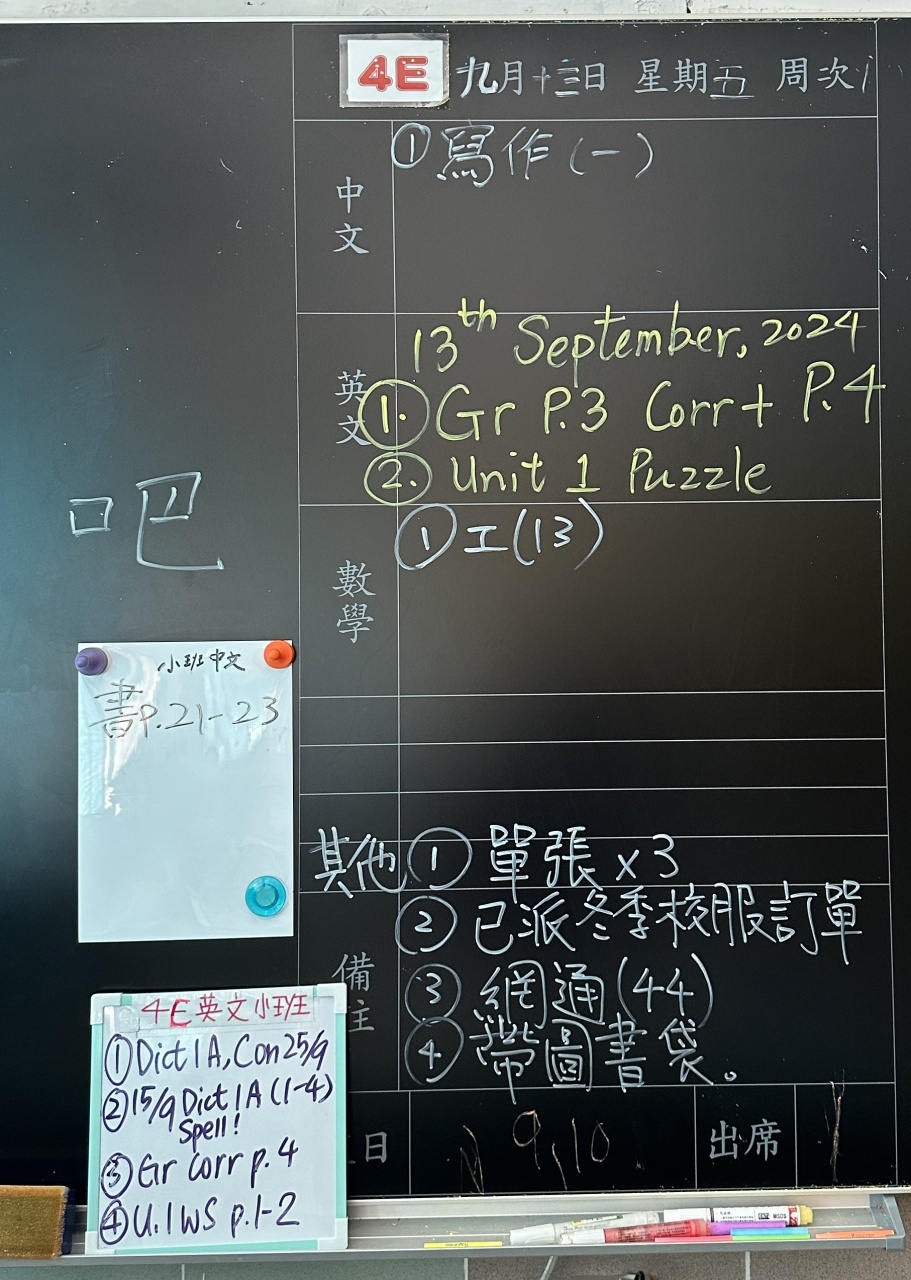 4E 九月十三日 星期五 周次1
中文
①寫作(一)
英文
13th September, 2024
①. Gr P.3 Corr + P.4
②. Unit 1 Puzzle
數學
①工(13)
其他
①單張x3
②已派冬季校服訂單
備註
③網通(44)
④帶圖書袋。
日
9,10
出席
吧
小班中文
書P.21-23
4E英文小班
①Dict 1A, Con 25/9
②15/9 Dict 1A (1-4)
Spell!
③Gr corr p.4
④U.1 WS p.1-2